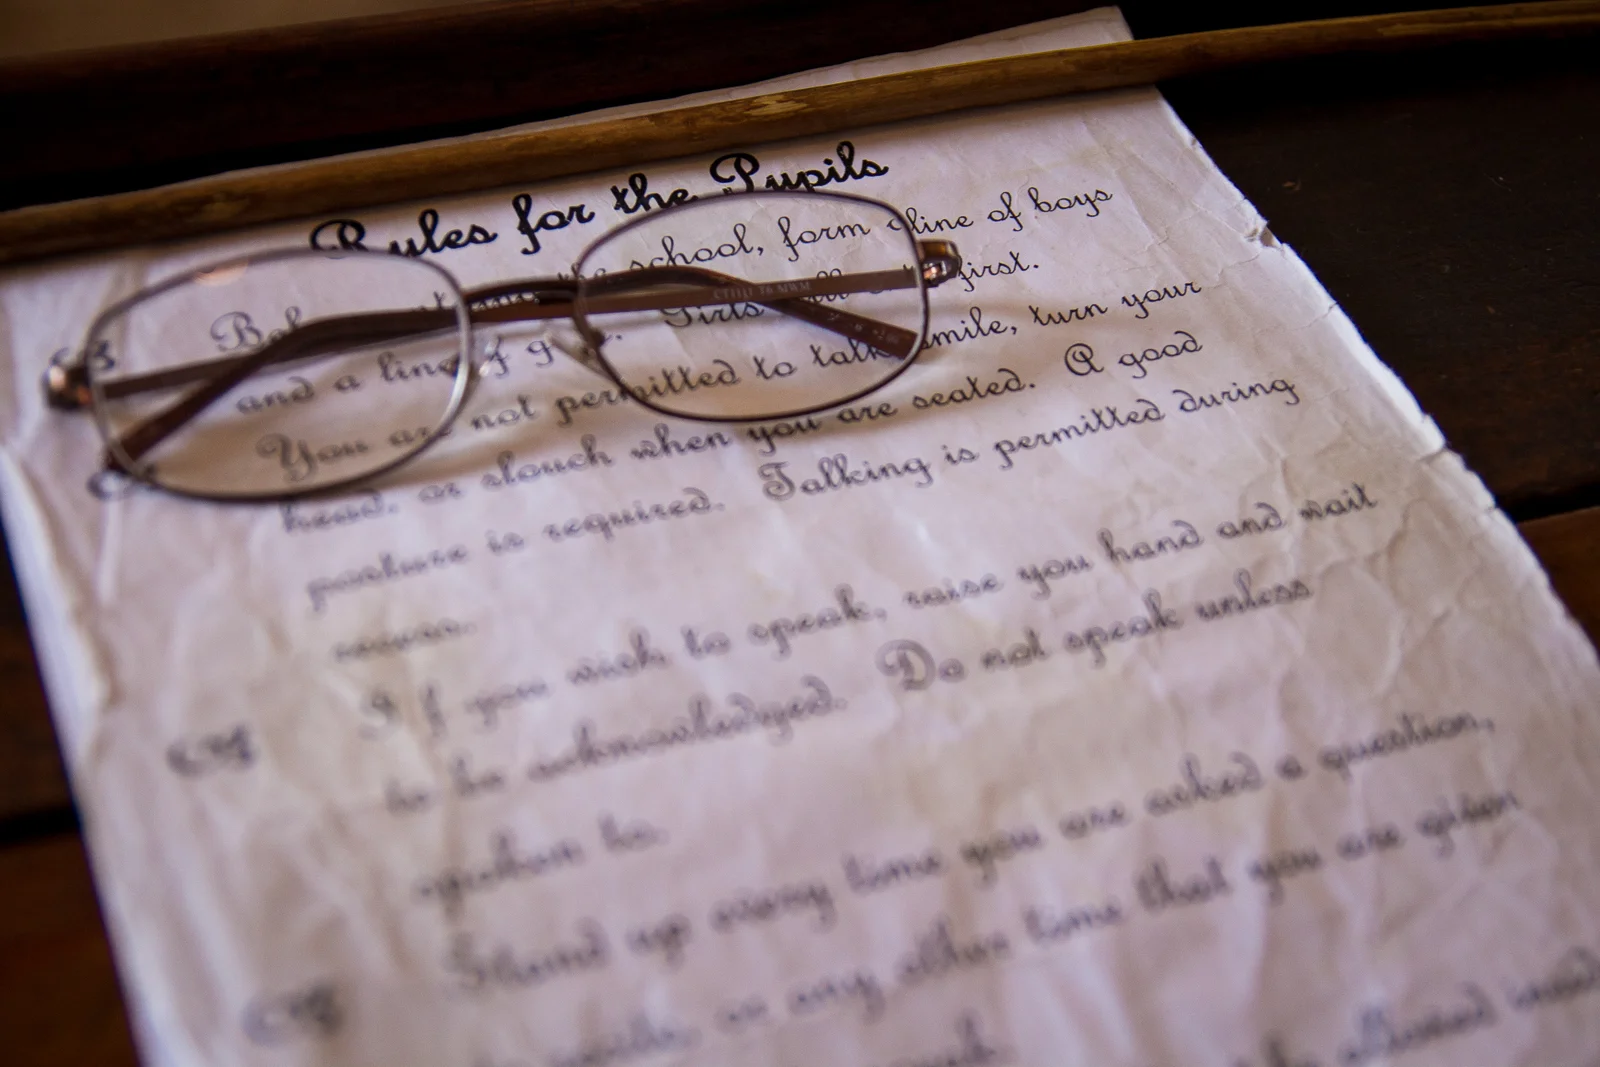 Rules for the Pupils
the school, form a line of boys
and a line of g s. Girls first.
You are not permitted to talk, smile, turn your
head, or slouch when you are seated. A good
posture is required. Talking is permitted during
recess.
If you wish to speak, raise you hand and wait
to be acknowledged. Do not speak unless
spoken to.
Stand up every time you are asked a question,
or any other time that you are given
be allowed
CT1111 T6 MWM